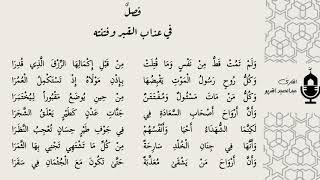 فصل
في عذاب القبر وفتنته
وَلَمْ تَمُتْ قَطُّ مِنْ نَفْسٍ وَمَا قُتِلَتْ مِنْ قَبْلِ إِكْمَالِهَا الرِّزْقَ الَّذِي قُدِرَا
وَكُلُّ رُوحٍ رَسُولُ الْمَوْتِ يَقْبِضُهَا بِإِذْنِ مَوْلَاهُ إِذْ تَسْتَكْمِلُ الْعُمُرَا
وَكُلُّ مَنْ مَاتَ مَسْئُولٌ وَمُفْتَتَنٌ مِنْ حِينِ يُوضَعُ مَقْبُورًا لِيُخْتَبَرَا
وَأَنَّ أَرْوَاحَ أَصْحَابِ السَّعَادَةِ فِي جَنَّاتِ عَدْنٍ كَطَيْرٍ يَعْلُقُ الشَّجَرَا
لَكِنَّمَا الشُّهَدَاءُ أَحْيَا وَأَنْفُسُهُمْ فِي جَوْفِ طَيْرٍ حِسَانٍ تُعْجِبُ النَّظَرَا
وَأَنَّهَا فِي جِنَانِ الْخُلْدِ سَارِحَةٌ مِنْ كُلِّ مَا تَشْتَهِي تَجْنِي بِهَا الثَّمَرَا
وَأَنَّ أَرْوَاحَ مَنْ يَشْقَى مُعَذَّبَةٌ حَتَّى تَكُونَ مَعَ الْجُثْمَانِ فِي سَقَرَا